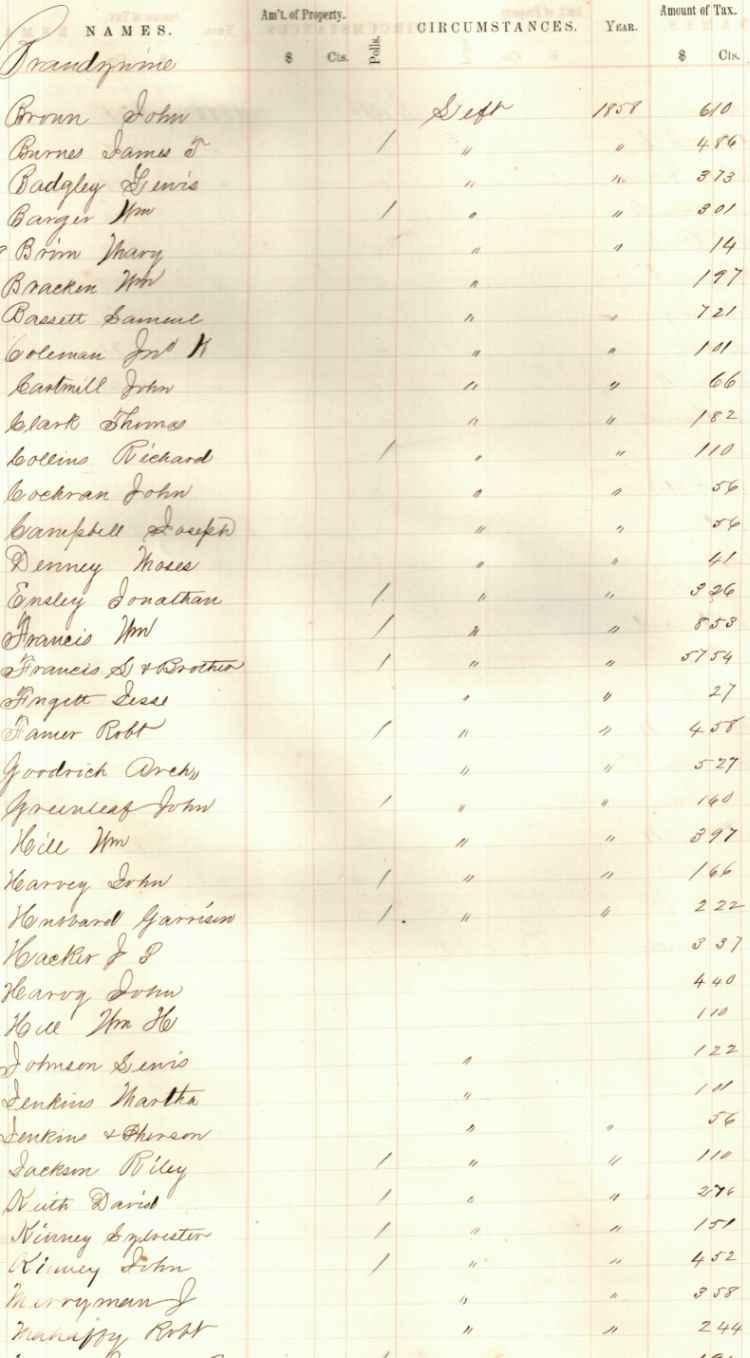 NAMES. Am't. of Property. Polls. CIRCUMSTANCES. YEAR. Amount of Tax.
$ Cts. $ Cts.
Brandywine
Broun John Left 1858 6 10
Burnes James T / " " 4 86
Badgley Lewis " " 3 73
Barger Wm / " " 3 01
Brim Mary " " 14
Bracken Wm " 1 97
Bassett Samuel " " 7 21
Coleman Jno K " " 1 01
Cartmill John " " 66
Clark Thomas " " 1 82
Collins Richard / " " 1 10
Cochran John " " 56
Campbell Joseph " " 56
Denney Moses " " 41
Ensley Jonathan / " " 3 26
Francis Wm / " " 8 53
Francis S & Brother / " " 57 54
Fugett Jesse " " 27
Famer Robt / " " 4 58
Goodrich Arch " " 5 27
Greenleaf John / " " 1 60
Hill Wm " " 3 97
Harvey John / " " 1 66
Hubbard Garrison / " " 2 22
Hacker J S 3 37
Harvy John 4 40
Hill Wm H 1 10
Johnson Lewis " 1 22
Jenkins Martha " 1 01
Jenkins & " " 56
Jackson Riley / " " 1 10
Keith David / " " 2 76
Kinney Sylvester / " " 1 51
Kinney John / " " 4 52
Merryman J " " 3 58
Mahaffy Robt " " 2 44